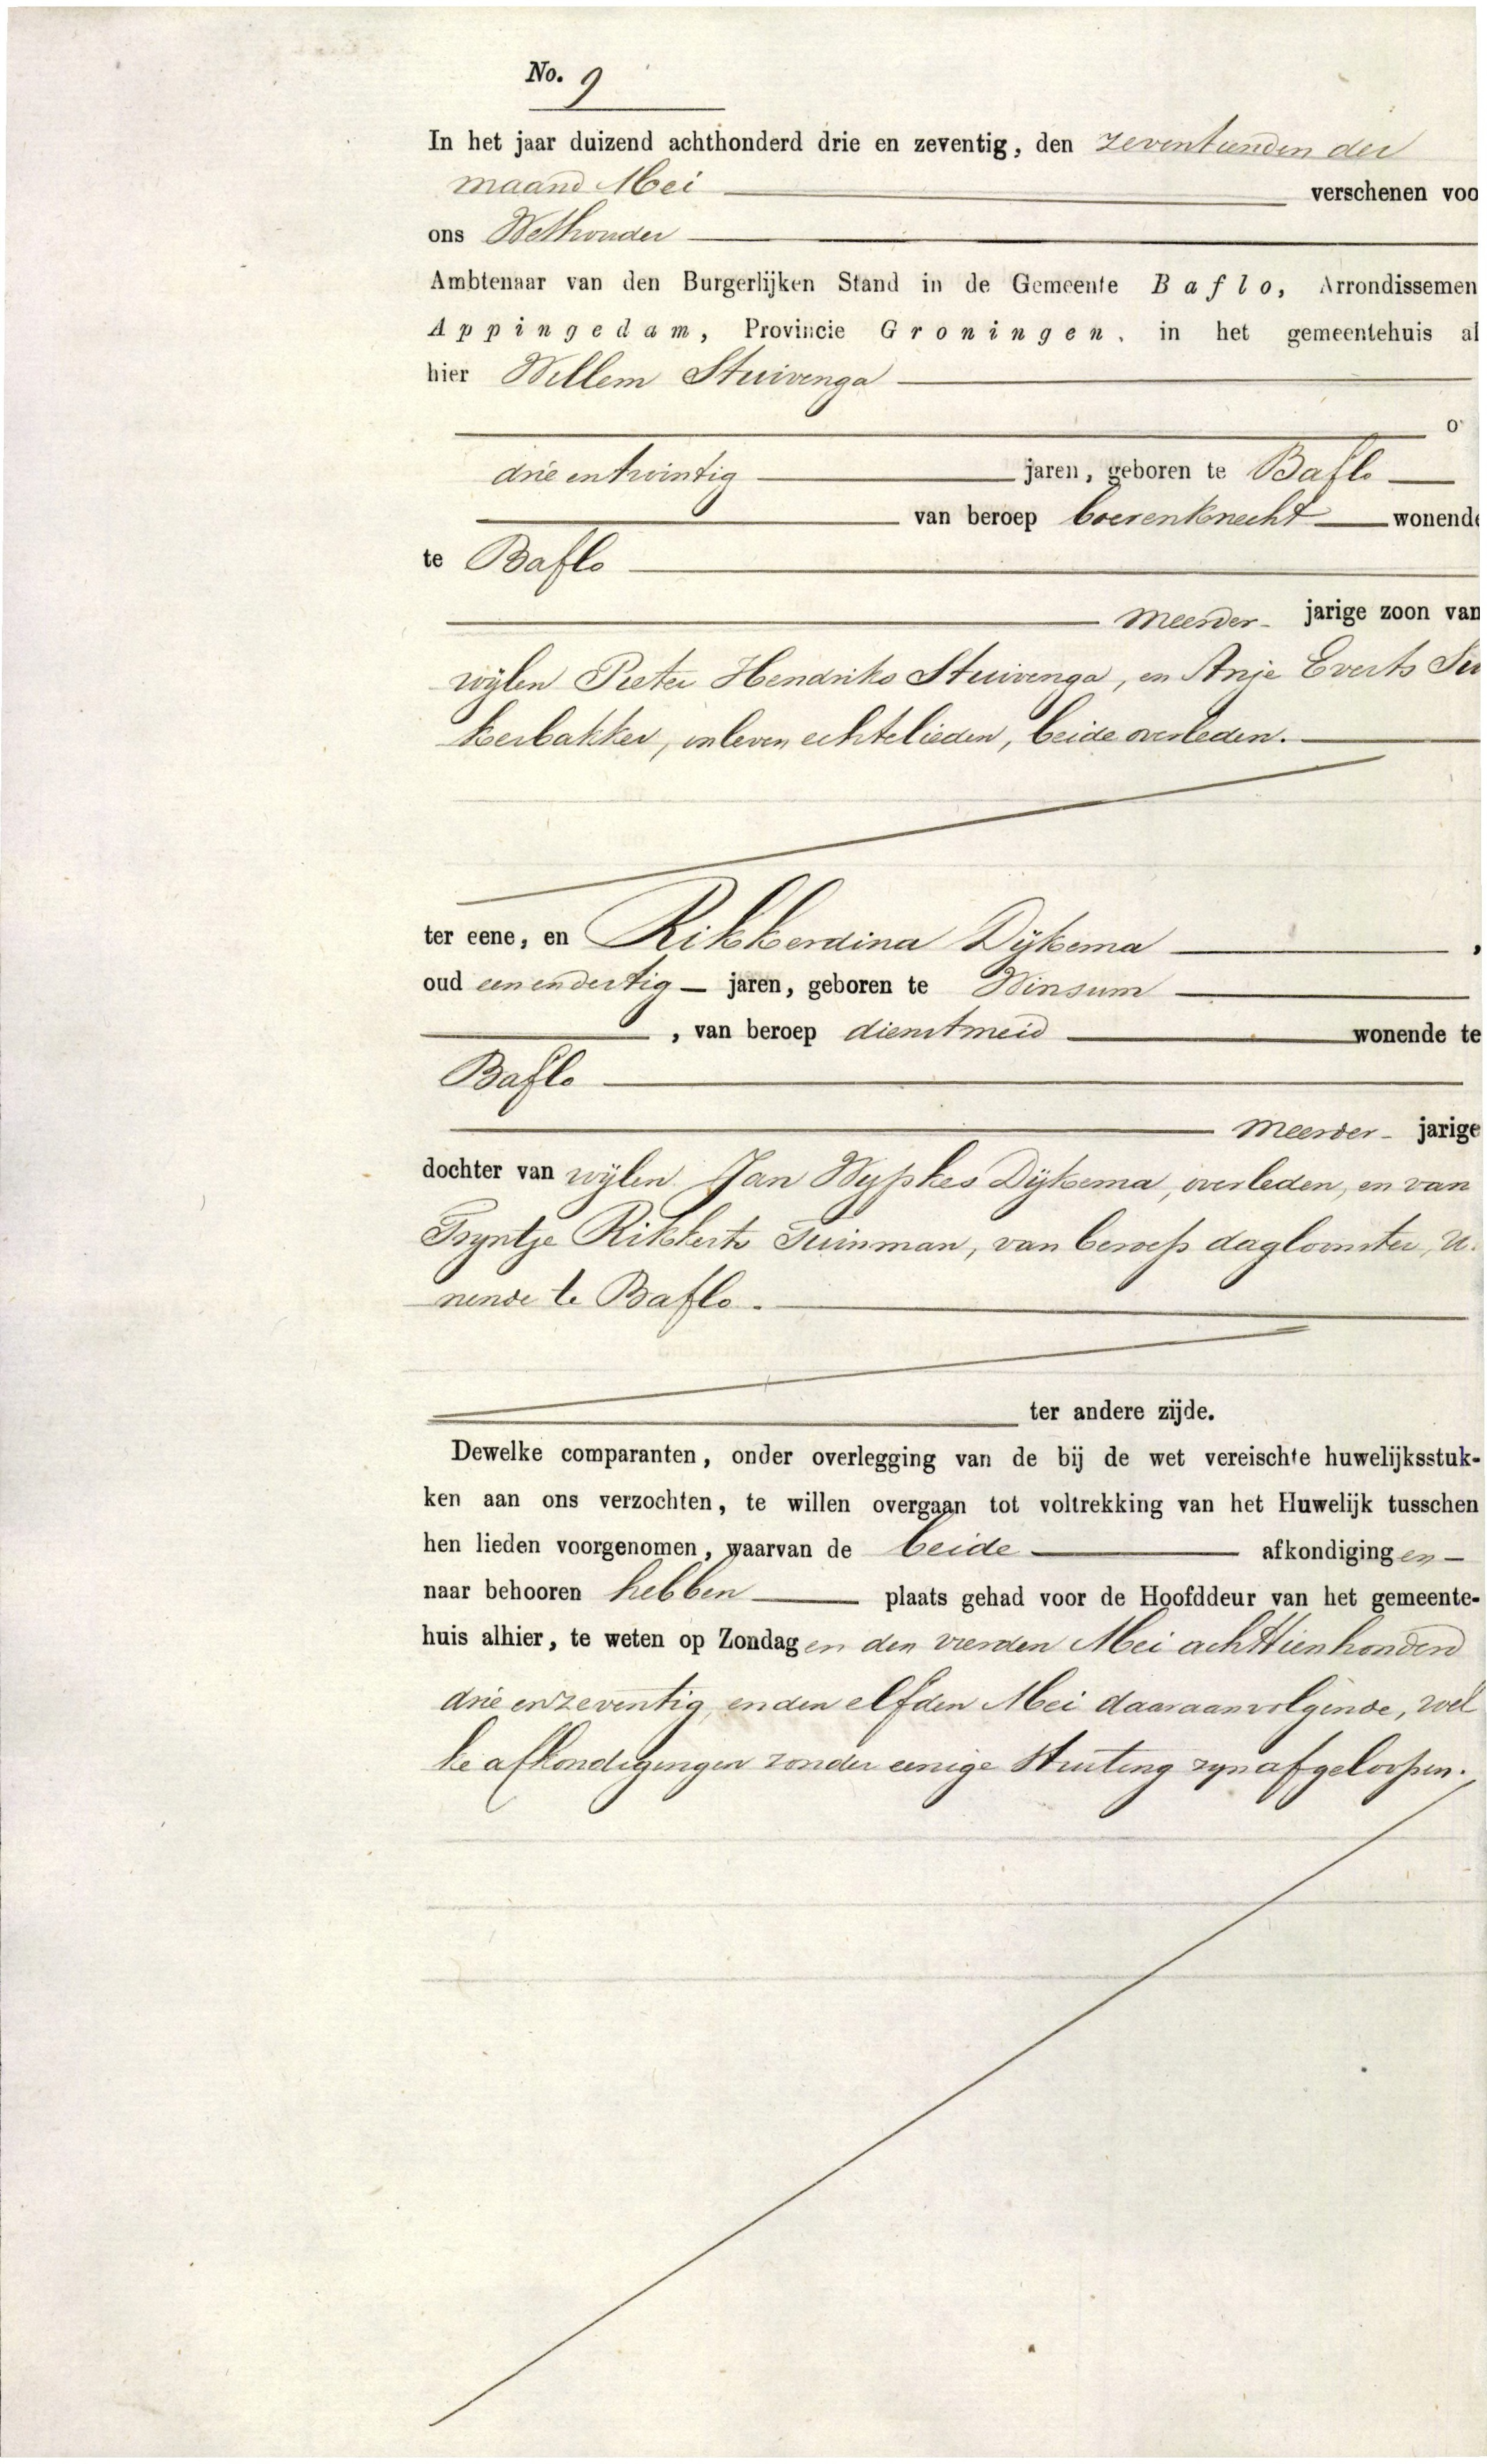 No. 9
In het jaar duizend achthonderd drie en zeventig, den zeventienden der
maand Mei verschenen voo
ons Wethouder
Ambtenaar van den Burgerlijken Stand in de Gemeente Baflo, Arrondissemen
Appingedam, Provincie Groningen, in het gemeentehuis al
hier Willem Stuivenga
o
drie entwintig jaren, geboren te Baflo
van beroep boerenknecht wonende
te Baflo
meerder- jarige zoon van
wijlen Pieter Hendriks Stuivenga, en Anje Everts Sui
kerbakker, in leven echtelieden, beide overleden.
ter eene, en Rikkerdina Dijkema,
oud een en dertig jaren, geboren te Winsum
, van beroep dienstmeid wonende te
Baflo
meerder- jarige
dochter van wijlen Jan Wypkes Dijkema, overleden, en van
Tryntje Rikkerts Tuinman, van beroep dagloonster, w
nende te Baflo.
ter andere zijde.
Dewelke comparanten, onder overlegging van de bij de wet vereischte huwelijksstuk-
ken aan ons verzochten, te willen overgaan tot voltrekking van het Huwelijk tusschen
hen lieden voorgenomen, waarvan de beide afkondigingen
naar behooren hebben plaats gehad voor de Hoofddeur van het gemeente-
huis alhier, te weten op Zondagen den vierden Mei achttienhonderd
drie en zeventig, en den elfden Mei daaraanvolgende, wel
ke afkondigingen zonder eenige stuiting zyn afgeloopen.